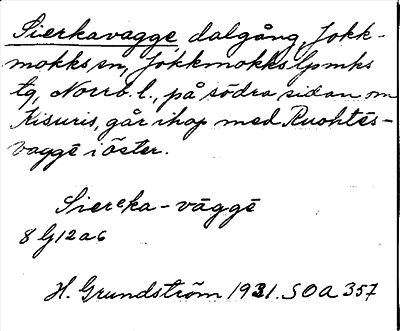 Sierkavagge, dalgång, Jokk-
mokks sn, Jokkmokks lpmks
tg, Norrb. l., på södra sidan om
Kisuris, går ihop med Ruohtēs-
vaggē i öster.
Sierᵉka - vāggē
8 G12a6
H. Grundström 1931. SOA 357